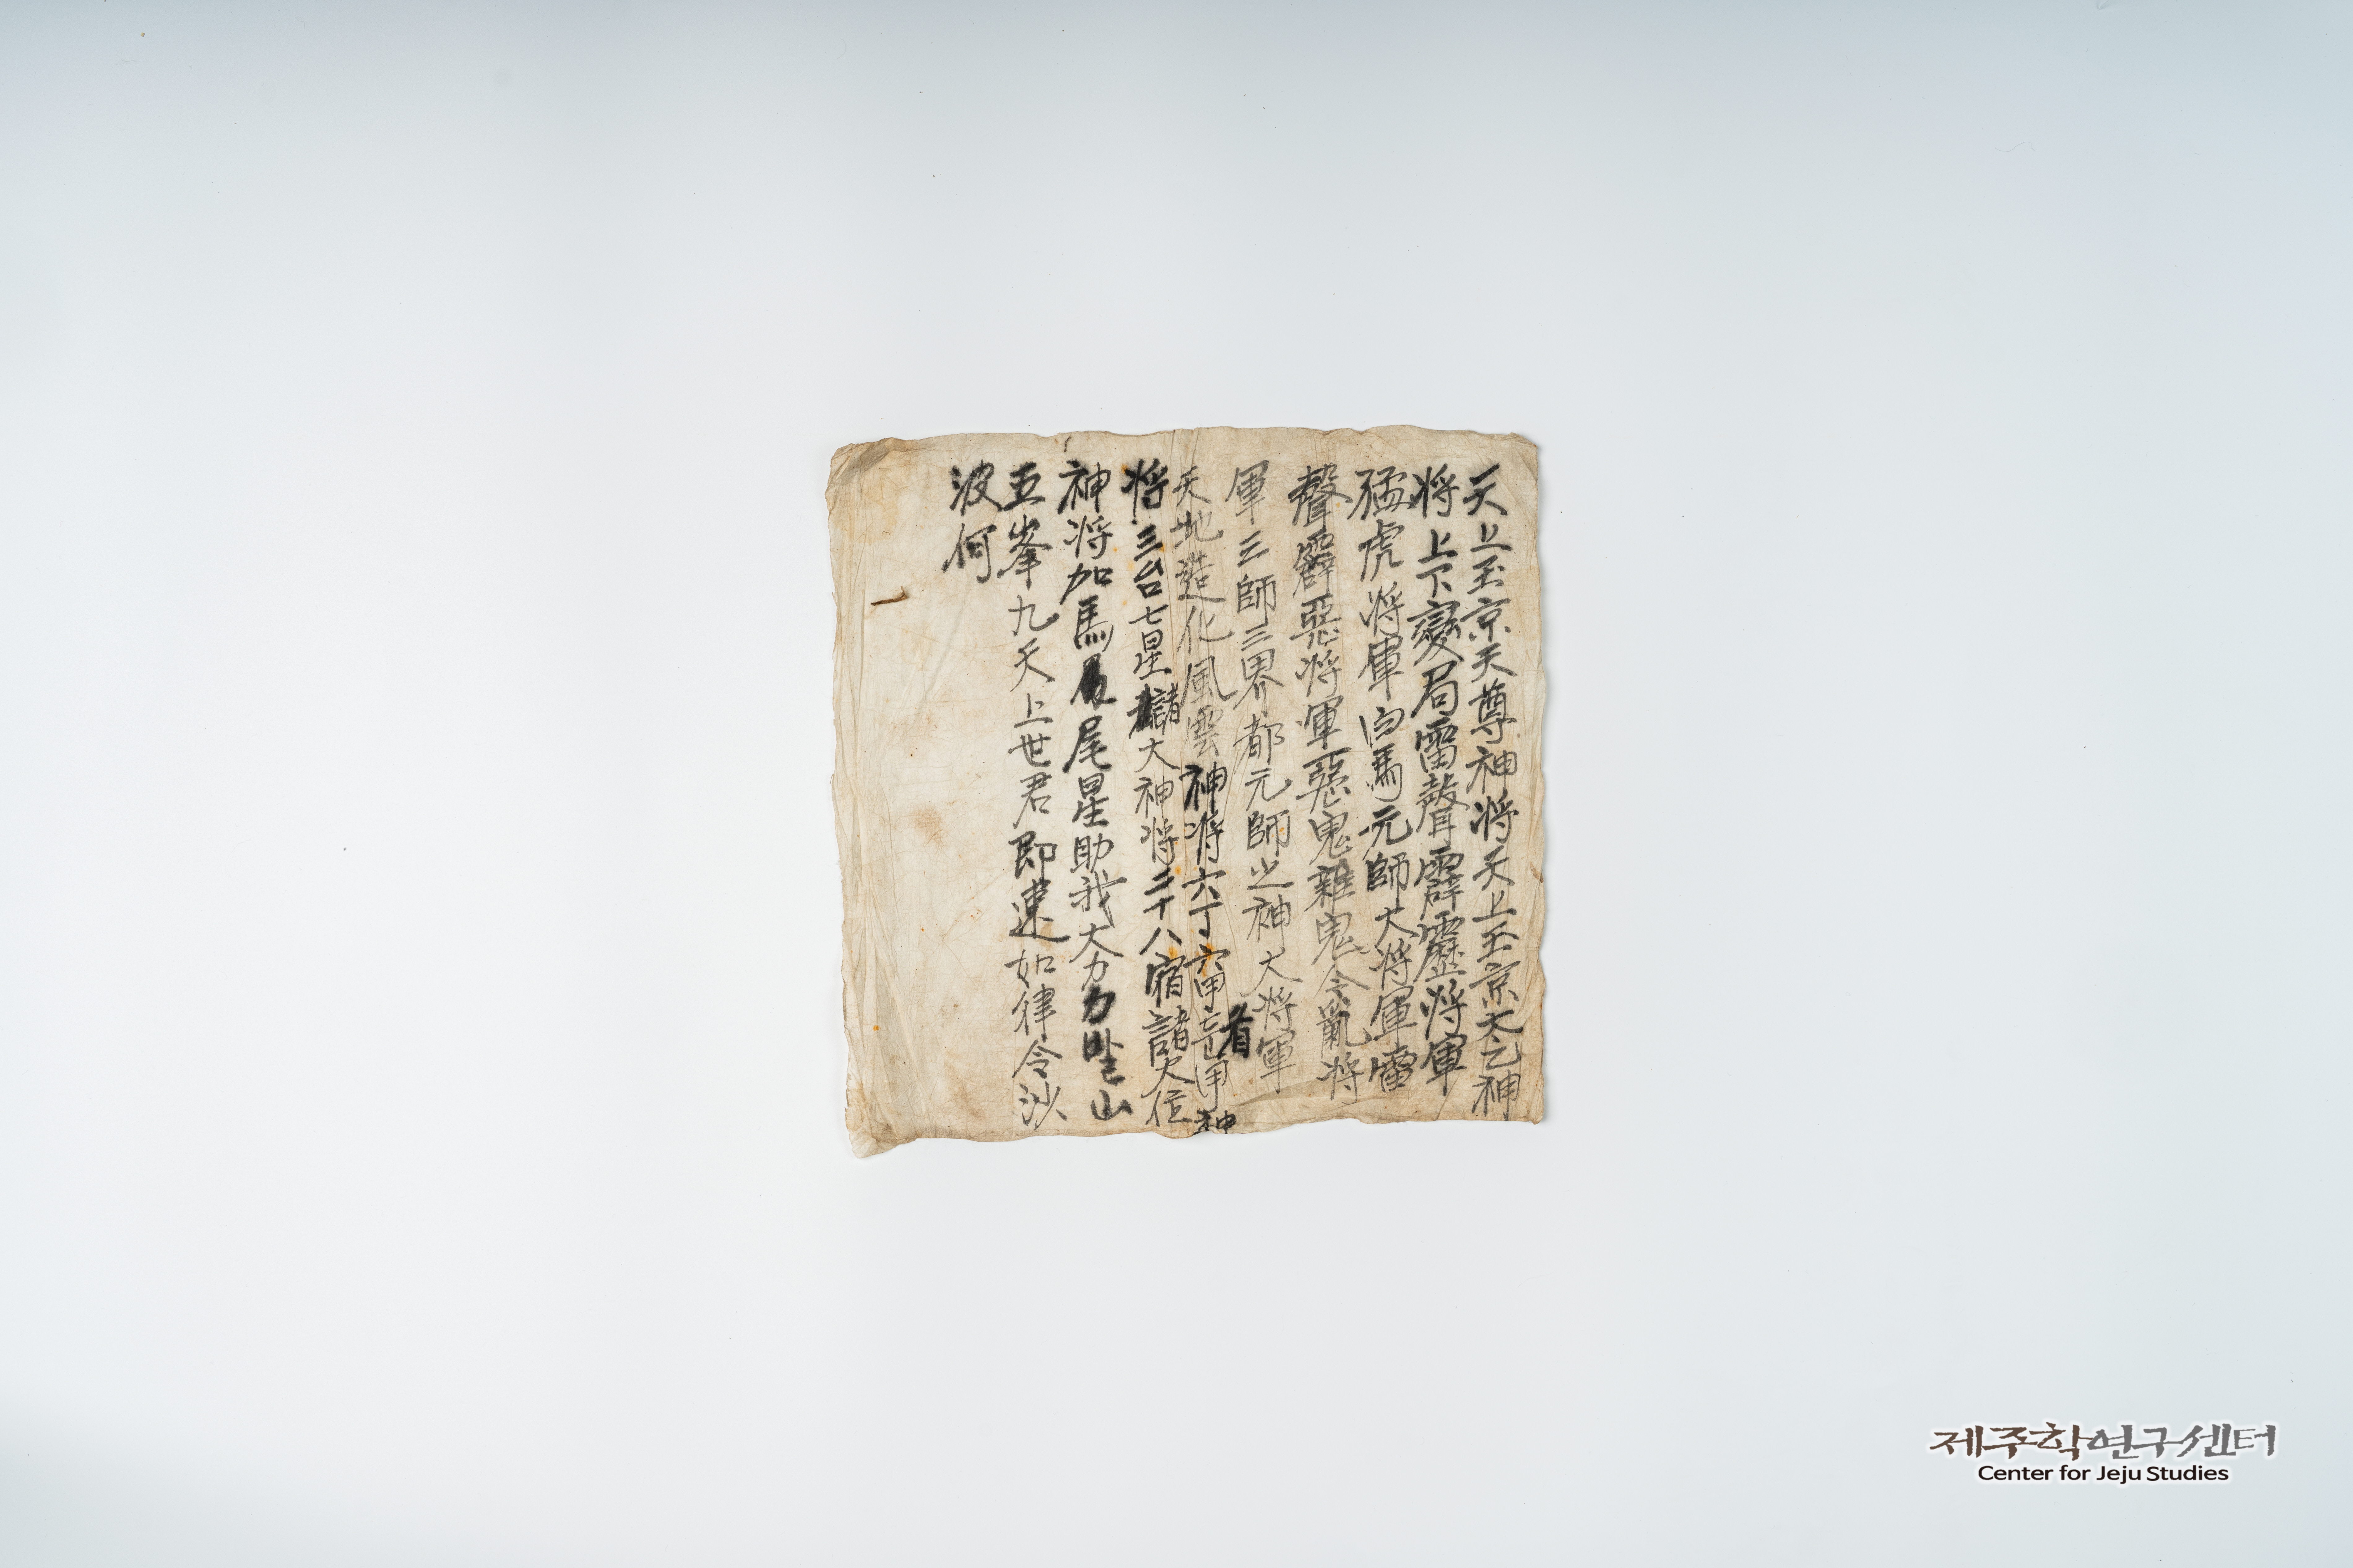 天上玉京天尊神将天上玉京太乙神
将上下變局雷聲霹靂将軍
猛虎将軍白馬元師大将軍雷
聲霹惡将軍惡鬼雜鬼令亂将
軍三師三界都元師之神大将軍
天地造化風雲神将六丁六甲 神
将三台七星諸大神将二十八宿諸大位
神将加馬尾星助我大力 山
五峯九天上世君即速如律令沙
波何
제주학연구센터
Center for Jeju Studies